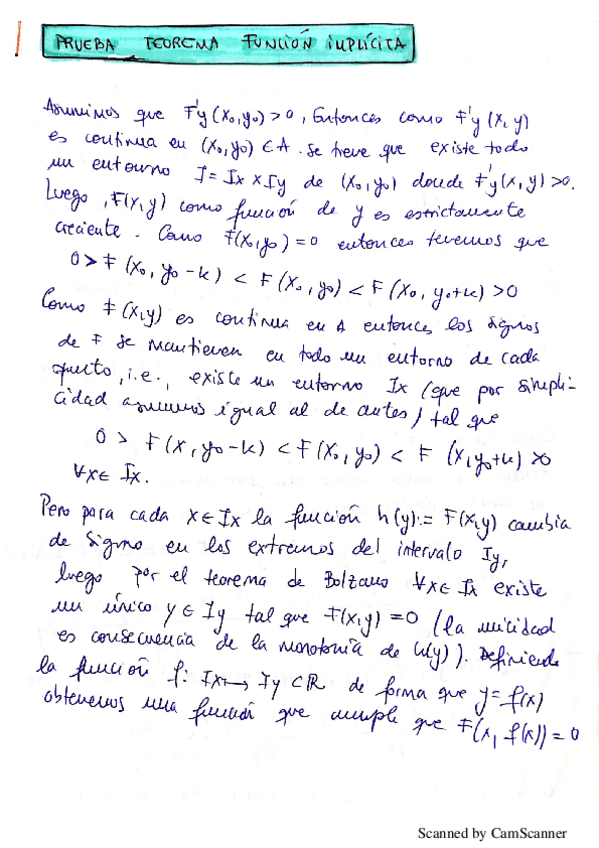 PRUEBA TEOREMA FUNCIÓN IMPLÍCITA
Asumimos que F'y (x₀,y₀) > 0, Entonces como F'y (x, y)
es continua en (x₀,y₀) ∈ A. Se tiene que existe todo
un entorno I = Ix x Iy de (x₀,y₀) donde F'y (x,y) > 0.
Luego, F(x,y) como función de y es estrictamente
creciente. Como F(x₀,y₀) = 0 entonces tenemos que
0 > F (x₀, y₀ - k) < F (x₀, y₀) < F (x₀, y₀+k) > 0
Como F (x,y) es continua en A entonces los signos
de F se mantienen en todo un entorno de cada
punto, i.e., existe un entorno Ix (que por simpli-
cidad asumimos igual al de antes) tal que
0 > F (x, y₀ - k) < F (x₀, y₀) < F (x, y₀+k) > 0
∀x ∈ Ix.
Pero para cada x ∈ Ix la función h(y) := F(x,y) cambia
de signo en los extremos del intervalo Iy,
luego por el teorema de Bolzano ∀x ∈ Ix existe
un único y ∈ Iy tal que F(x,y) = 0 (la unicidad
es consecuencia de la monotonía de h(y)). Definiendo
la función f: Ix ⟼ Iy ⊂ ℝ de forma que y = f(x)
obtenemos una función que cumple que F(x, f(x)) = 0
Scanned by CamScanner